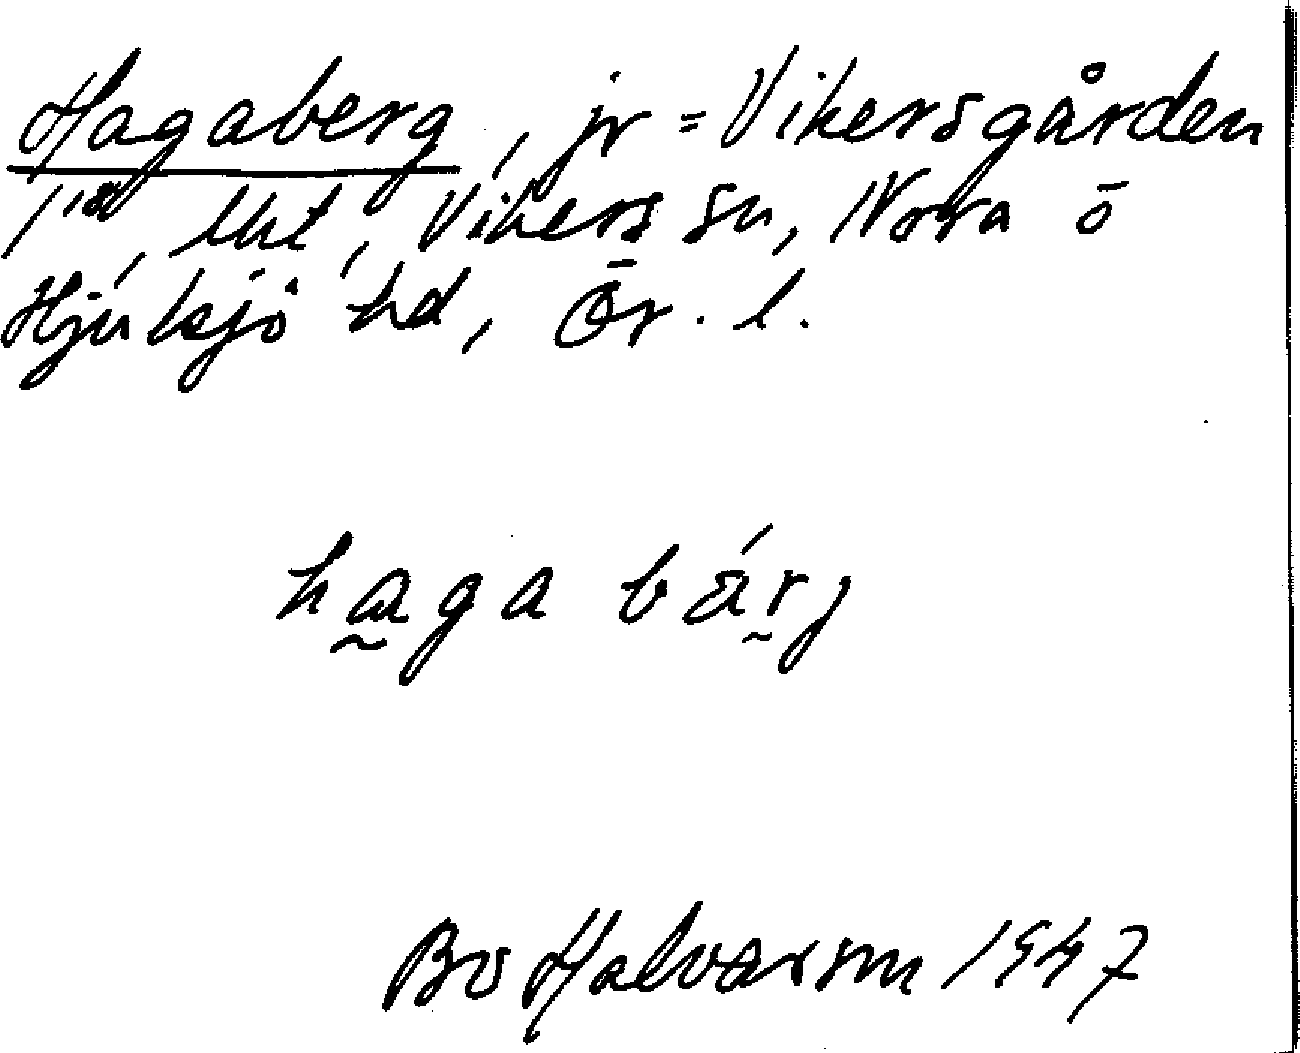 Hagaberg, jr = Vikersgården
1¹⁄₈, lht, Vikers sn, Nora ö
Hjulsjö hd, Ör. l.
haga bärj
Bo Halvarson 1947